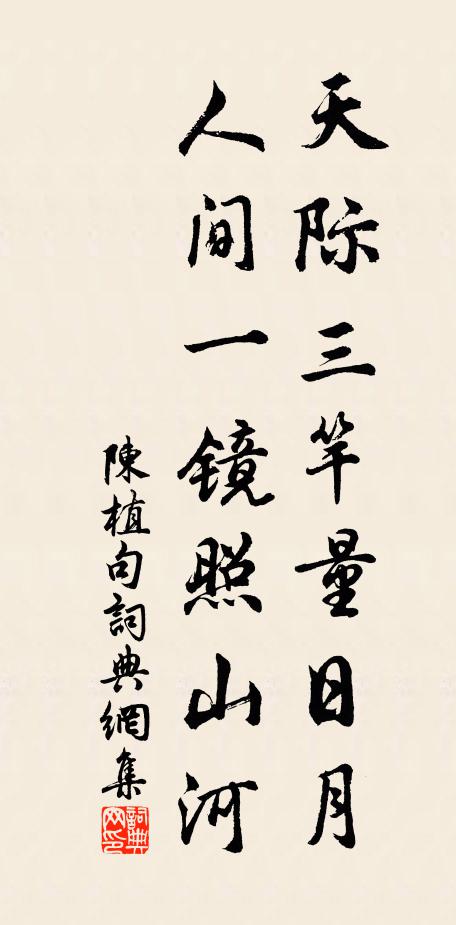 天际三竿量日月
人间一镜照山河
陳植句詞典網集
詞典网印